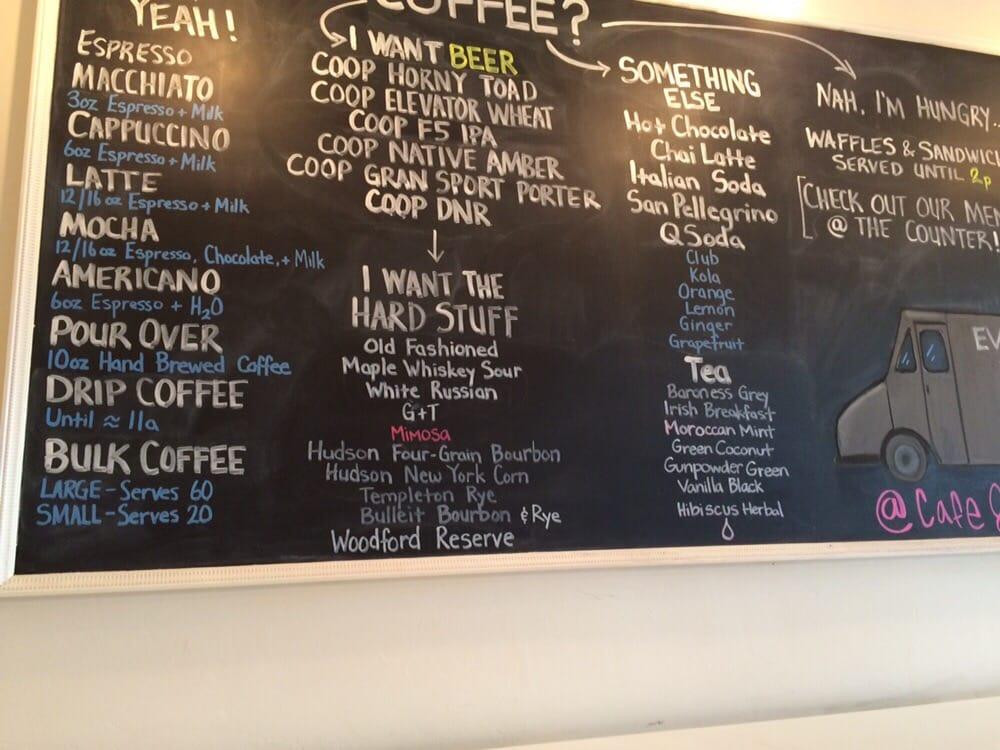 COFFEE?
YEAH!
ESPRESSO
MACCHIATO
3oz Espresso + Milk
CAPPUCCINO
6oz Espresso + Milk
LATTE
12/16 oz Espresso + Milk
MOCHA
12/16 oz Espresso, Chocolate, + Milk
AMERICANO
6oz Espresso + H₂O
POUR OVER
10oz Hand Brewed Coffee
DRIP COFFEE
Until ≈ 11a
BULK COFFEE
LARGE - Serves 60
SMALL - Serves 20
I WANT BEER
COOP HORNY TOAD
COOP ELEVATOR WHEAT
COOP F5 IPA
COOP NATIVE AMBER
COOP GRAN SPORT PORTER
COOP DNR
I WANT THE
HARD STUFF
Old Fashioned
Maple Whiskey Sour
White Russian
G+T
MIMOSA
Hudson Four-Grain Bourbon
Hudson New York Corn
Templeton Rye
Bulleit Bourbon & Rye
Woodford Reserve
SOMETHING
ELSE
Hot Chocolate
Chai Latte
Italian Soda
San Pellegrino
Q Soda
Club
Kola
Orange
Lemon
Ginger
Grapefruit
Tea
Baroness Grey
Irish Breakfast
Moroccan Mint
Green Coconut
Gunpowder Green
Vanilla Black
Hibiscus Herbal
NAH, I'M HUNGRY..
WAFFLES & SANDWICH
SERVED UNTIL 2p
[CHECK OUT OUR ME
@ THE COUNTER!
EV
@Cafe